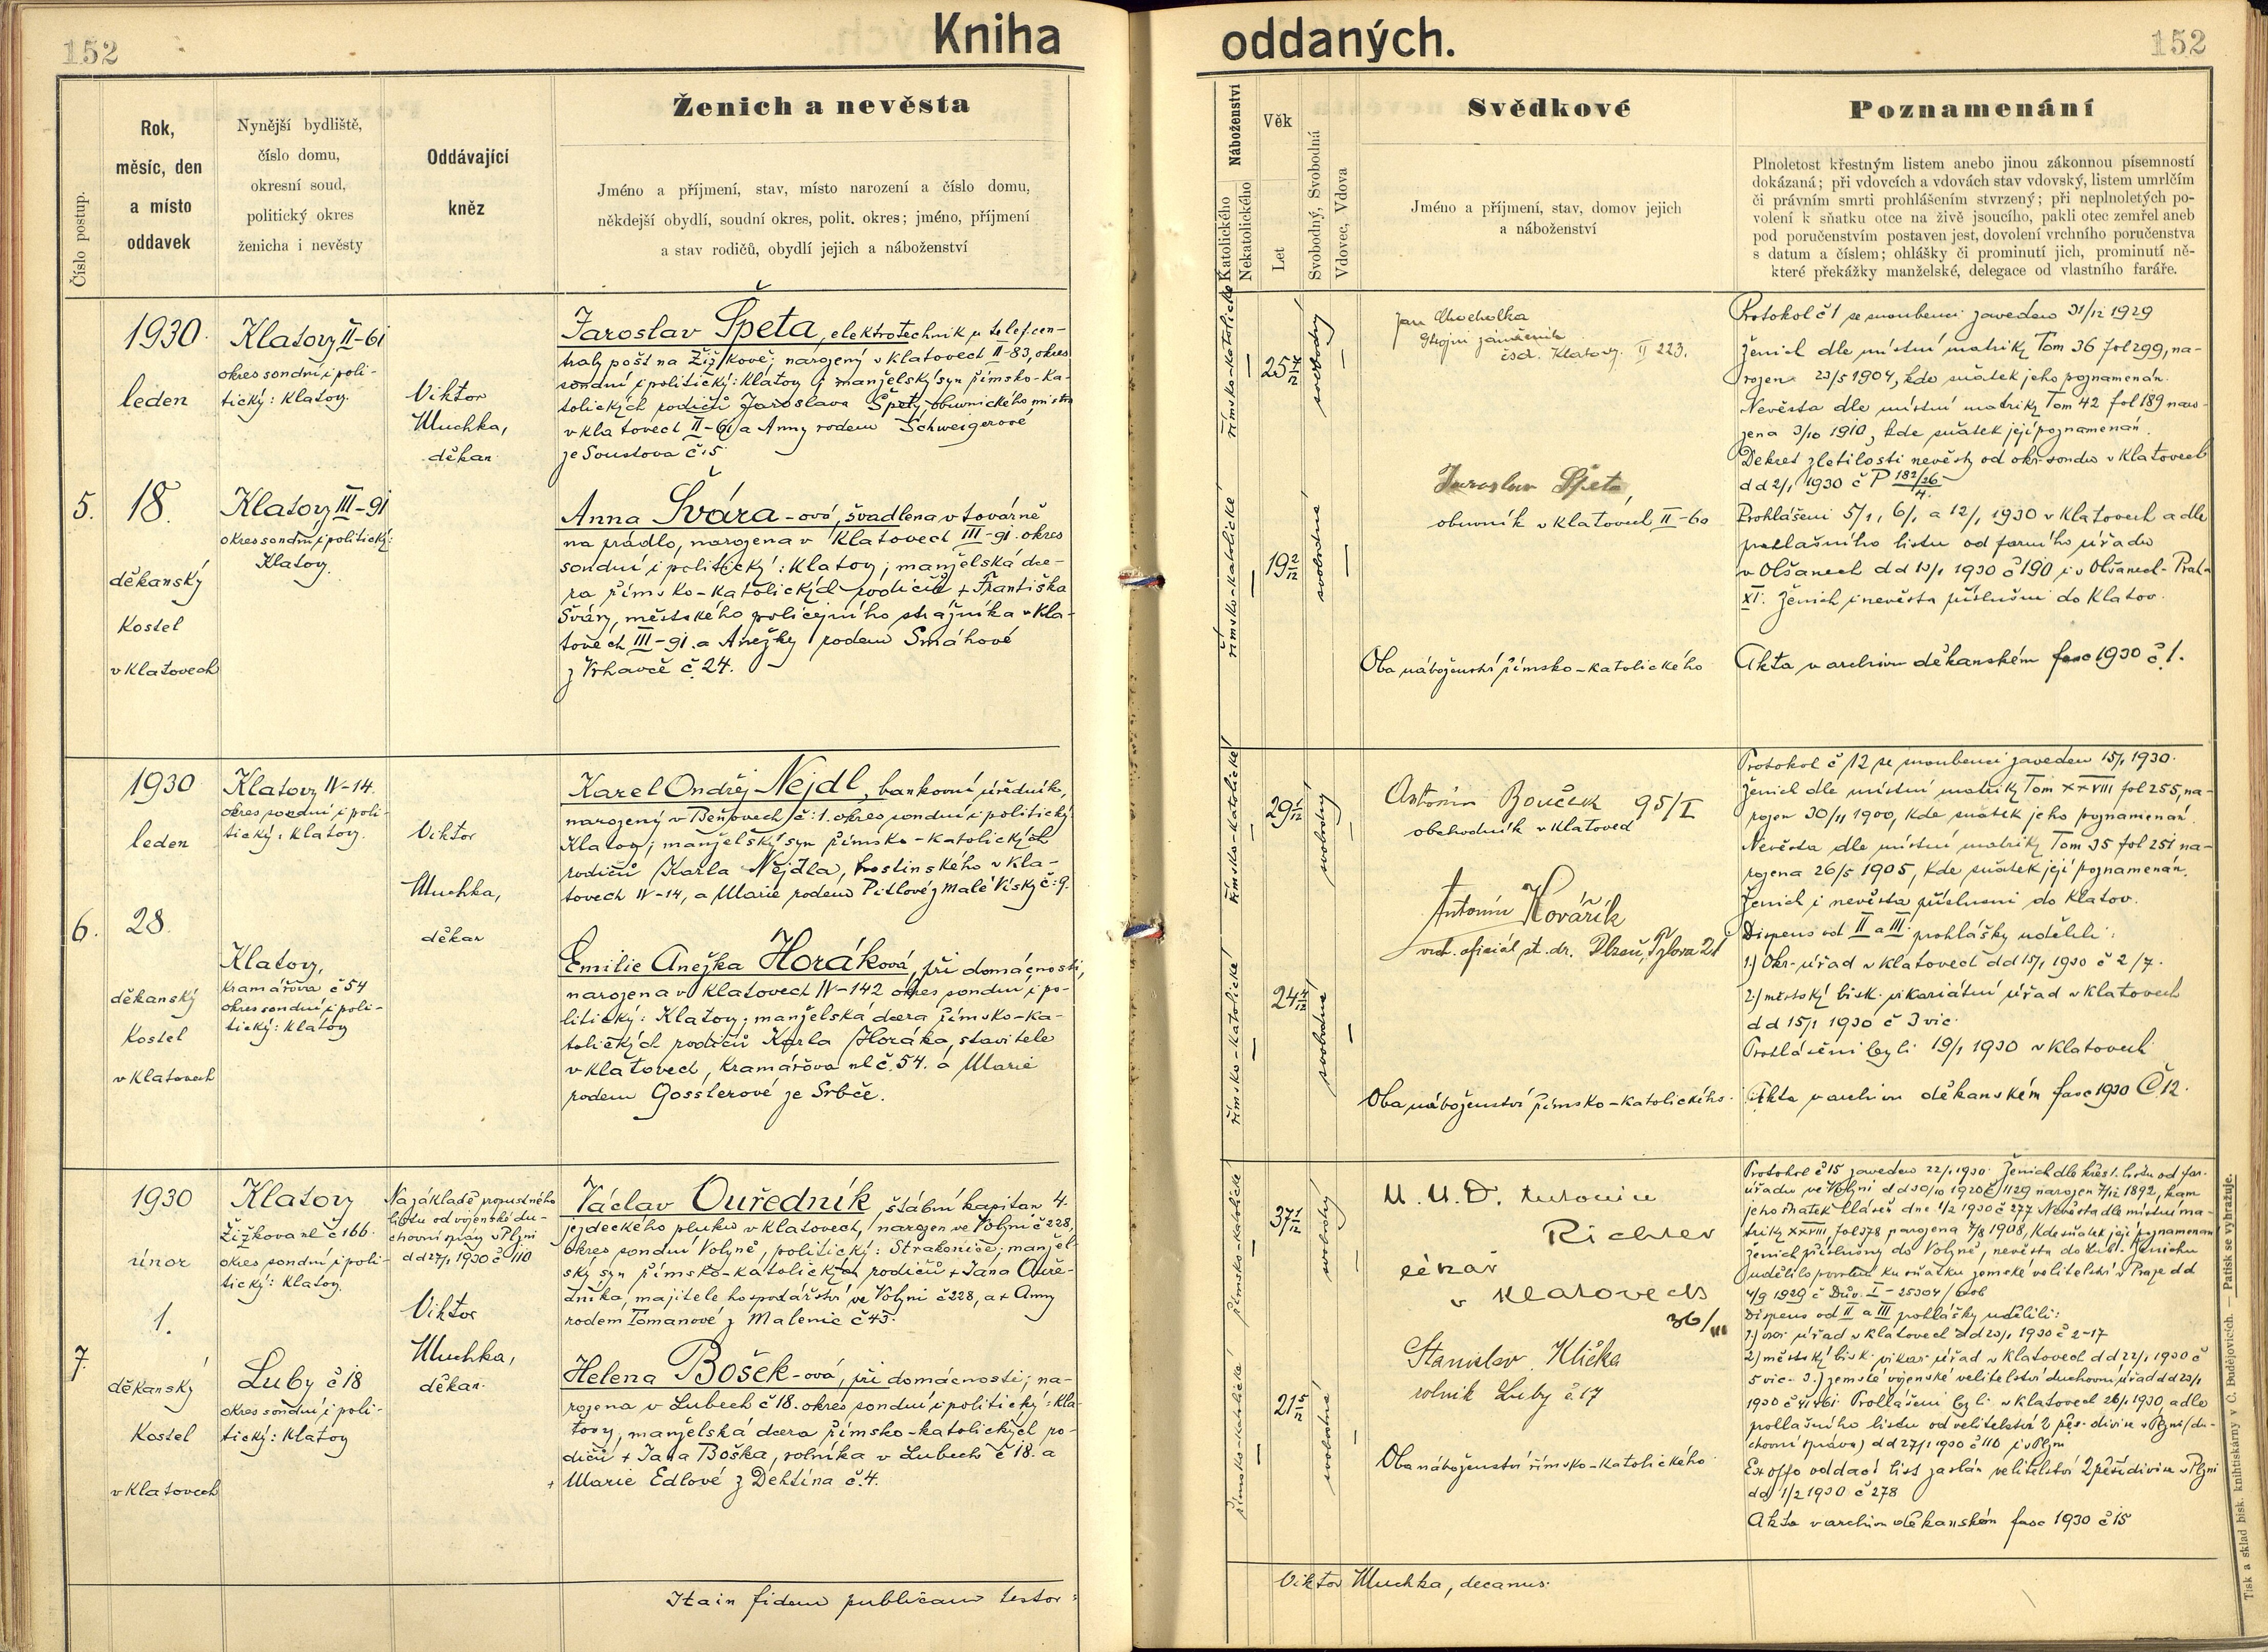 152
Kniha
Číslo postup.
Rok,
měsíc, den
a místo
oddavek
Nynější bydliště,
číslo domu,
okresní soud,
politický okres
ženicha i nevěsty
Oddávající
kněz
Ženich a nevěsta
Jméno a příjmení, stav, místo narození a číslo domu,
někdejší obydlí, soudní okres, polit. okres; jméno, příjmení
a stav rodičů, obydlí jejich a náboženství
5.
1930
leden
18.
děkanský
kostel
v Klatovech
Klatovy II-61
okres soudní i poli-
tický: Klatovy.
Klatovy III-91
okres soudní i politický:
Klatovy.
Viktor
Muchka,
děkan
Jaroslav Špeta, elektrotechnik u telef. cen-
trály pošt na Žižkově; narozený v Klatovech II-83, okres
soudní i politický: Klatovy; manželský syn římsko-ka-
tolických rodičů Jaroslava Špety, obuvnického mistra
v Klatovech II-61 a Anny rodem Schweigerové
ze Soustova č: 5.
Anna Švára-ová, švadlena v továrně
na prádlo, narozena v Klatovech III-91. okres
soudní i politický: Klatovy; manželská dce-
ra římsko-katolických rodičů + Františka
Šváry, městského policejního strážníka v Kla-
tovech III-91. a Anežky rodem Smáhové
z Vrhavče č. 24.
6.
1930
leden
28.
děkanský
kostel
v Klatovech
Klatovy IV-14.
okres soudní i poli-
tický: Klatovy.
Klatovy,
Kramářova č 54
okres soudní i poli-
tický: Klatovy
Viktor
Muchka,
děkan
Karel Ondřej Nejdl, bankovní úředník,
narozený v Beňovech č: 1. okres soudní i politický
Klatovy; manželský syn římsko-katolických
rodičů Karla Nejdla, hostinského v Kla-
tovech IV-14, a Marie rodem Pitlové z Malé Vísky č: 9.
Emilie Anežka Horáková, při domácnosti,
narozena v Klatovech IV-142 okres soudní i po-
litický: Klatovy; manželská dcera římsko-ka-
tolických rodičů Karla Horáka, stavitele
v Klatovech, Kramářova ul č. 54. a Marie
rodem Gosslerové ze Srbče.
7.
1930
únor
1.
děkanský
kostel
v Klatovech
Klatovy
Žižkova ul č 166.
okres soudní i poli-
tický: Klatovy.
Luby č 18
okres soudní i poli-
tický: Klatovy
Na základě propustného
listu od vojenské du-
chovní správy v Plzni
dd 27/1 1930 č 110
Viktor
Muchka,
děkan.
Václav Ouředník, štábní kapitán 4.
jezdeckého pluku v Klatovech, narozen ve Volyni č 228,
okres soudní Volyně, politický: Strakonice; manžel-
ský syn římsko-katolických rodičů + Jana Ouře-
dníka, majitele hospodářství ve Volyni č 228, a + Anny
rodem Tomanové z Malenic č 43.
Helena Bošek-ová, při domácnosti; na-
rozena v Lubech č 18. okres soudní i politický: Kla-
tovy, manželská dcera římsko-katolických ro-
dičů + Jana Boška, rolníka v Lubech č 18. a
+ Marie Edlové z Dehtína č. 4.
Ita in fidem publicam testor:
oddaných.
152
Náboženství
Katolického
Nekatolického
Věk
Let
Svobodný, Svobodná
Vdovec, Vdova
Svědkové
Jméno a příjmení, stav, domov jejich
a náboženství
Poznamenání
Plnoletost křestným listem anebo jinou zákonnou písemností
dokázaná; při vdovcích a vdovách stav vdovský, listem umrlčím
či právním smrti prohlášením stvrzený; při neplnoletých po-
volení k sňatku otce na živě jsoucího, pakli otec zemřel aneb
pod poručenstvím postaven jest, dovolení vrchního poručenstva
s datum a číslem; ohlášky či prominutí jich, prominutí ně-
které překážky manželské, delegace od vlastního faráře.
římsko-katolické
svobodný
římsko-katolické
19 2/12
svobodná
Jan Chocholka
strojní zámečník
čsd. Klatovy. II 223.
Jaroslav Špeta,
obuvník v Klatovech II-60
Oba náboženství římsko-katolického
Protokol č 1 se snoubenci zaveden 31/12 1929
Ženich dle místní matriky Tom 36 fol 299, na-
rozen 23/5 1904, kde sňatek jeho poznamenán.
Nevěsta dle místní matriky Tom 42 fol 189 naro-
zena 3/10 1910, kde sňatek její poznamenán.
Dekret zletilosti nevěsty od okr. soudu v Klatovech
dd 2/1 1930 č P 182/26
4.
Prohlášeni 5/1, 6/1 a 12/1 1930 v Klatovech a dle
prohlašního listu od farního úřadu
v Olšanech dd 13/1 1930 č 190 i v Olšanech-Praha
XI. Ženich i nevěsta příslušni do Klatov.
Akta v archivu děkanském fasc 1930 č 1.
římsko-katolické
29 1/12
svobodný
římsko-katolické
svobodná
Antonín Bouček 95/I
obchodník v Klatovech
Antonín Kovářík
vrch. oficiál st. dr. Plzeň, Tylova 21
Oba náboženství římsko-katolického.
Protokol č 12 se snoubenci zaveden 15/1 1930.
Ženich dle místní matriky Tom XXVIII fol 255, na-
rozen 30/11 1900, kde sňatek jeho poznamenán.
Nevěsta dle místní matriky Tom 35 fol 251 na-
rozena 26/5 1905, kde sňatek její poznamenán.
Ženich i nevěsta příslušni do Klatov.
Dispens od II a III prohlášky udělili:
1.) Okr. úřad v Klatovech dd 15/1 1930 č 2/7.
2.) městský bisk. vikariátní úřad v Klatovech
dd 15/1 1930 č 3 vic.
Prohlášeni byli 19/1 1930 v Klatovech
Akta v archivu děkanském fasc 1930 Č 12.
římsko-katolické
37 1/12
svobodný
římsko-katolické
21 5/12
svobodná
M.U.D. Antonín
Richter
lékař
v Klatovech
36/III
Stanislav Klička
rolník Luby č. 17
Oba náboženství římsko-katolického.
Protokol č 15 zaveden 22/1 1930. Ženich dle křest. listu od far.
úřadu ve Volyni dd 30/10 1920 č 1129 narozen 7/12 1892, kam
jeho sňatek hlášen dne 1/2 1930 č 277 Nevěsta dle místní ma-
triky XXVIII, fol 378 narozena 7/8 1908, kde sňatek její poznamenán
Ženich příslušný do Volyně, nevěsta do Lub. Ženichu
udělilo povolení ku sňatku zemské velitelství v Praze dd
4/9 1929 č Dův. I-25304/
Dispens od II a III prohlášky udělili:
1.) okr. úřad v Klatovech dd 23/1 1930 č 2-17
2.) městský bisk. vikar. úřad v Klatovech dd 22/1 1930 č
5 vic. 3.) zemské vojenské velitelství duchovní úřad dd 23/1
Prohlášeni byli v Klatovech 26/1 1930, a dle
prohlašního listu od velitelství 2 pěs. divise v Plzni (du-
chovní správa) dd 27/1 1930 č 110 i v Plzni
Ex offo oddací list zaslán velitelství 2 pěší divise v Plzni
dd 1/2 1930 č 278
Akta v archivu děkanském fasc 1930 č 15
Viktor Muchka, decanus.
Tisk a sklad bisk. knihtiskárny v Č. Budějovicích. — Patisk se vyhražuje.